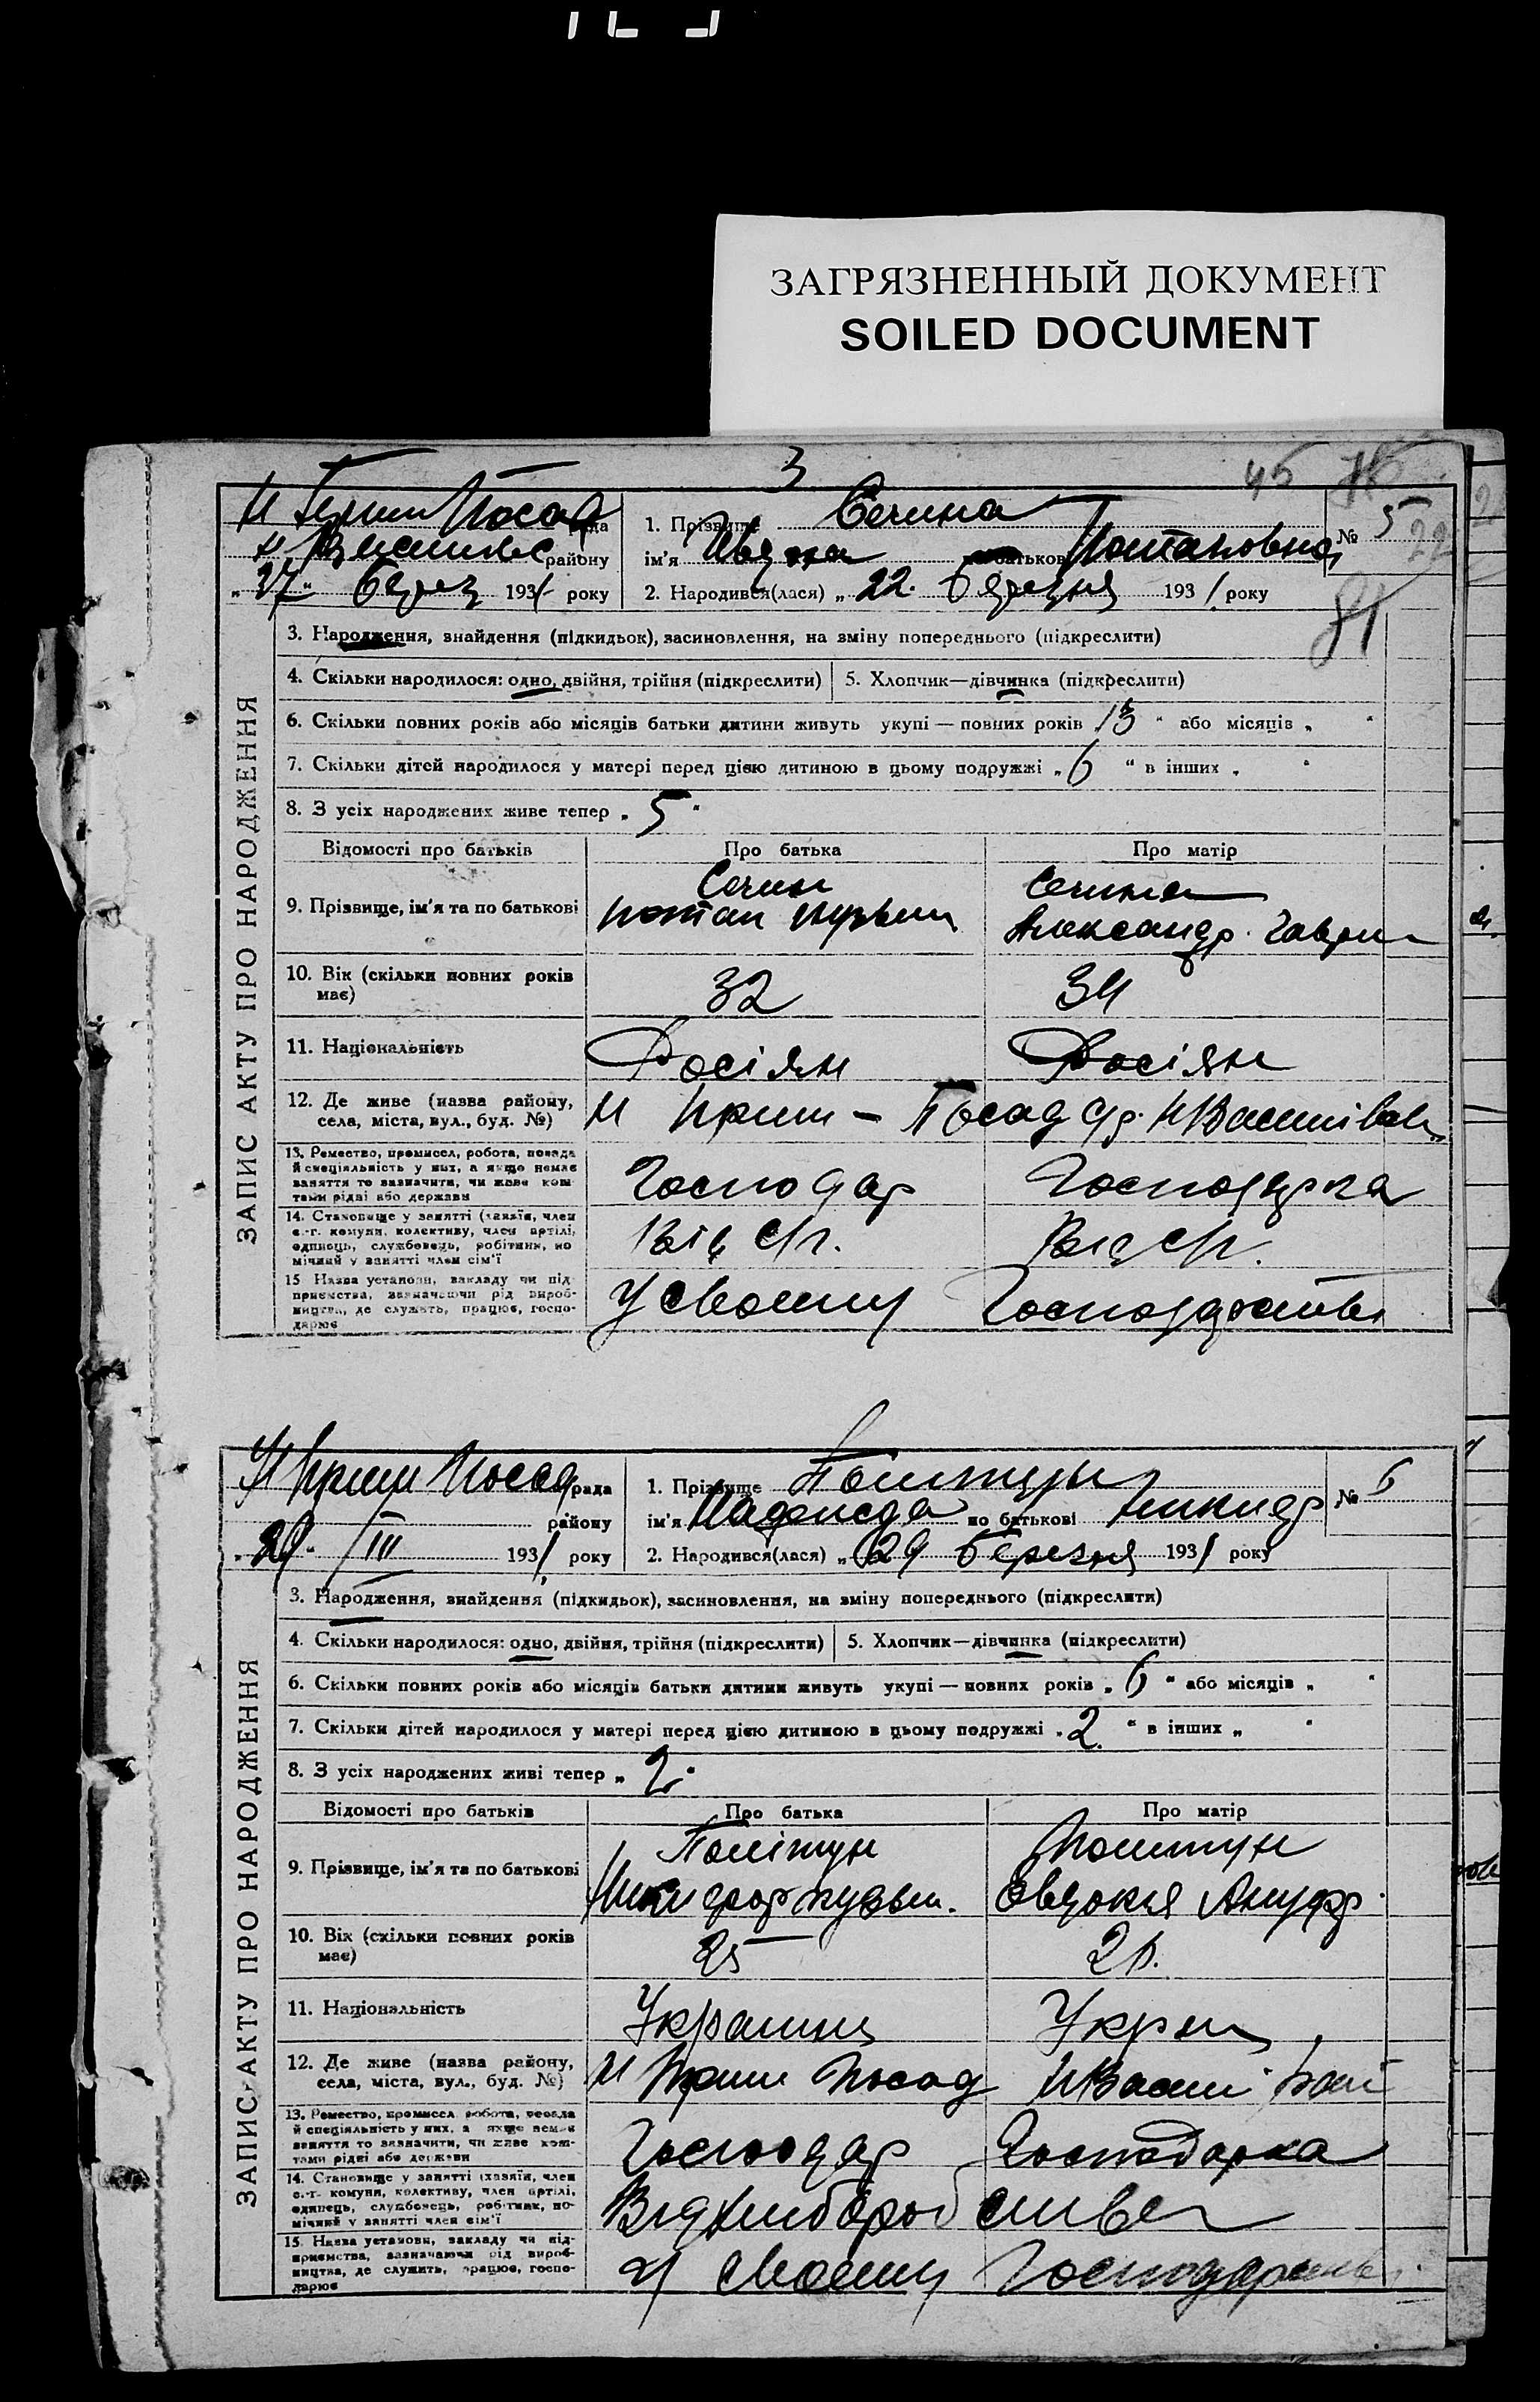 ЗАГРЯЗНЕННЫЙ ДОКУМЕНТ
SOILED DOCUMENT
3
45
Посад рада
району
"27" 1931 року
1. Прізвище Сечина
ім'я по батькові Потаповна
№ 5
22
81
2. Народився(лася) „22. березня 1931 року
ЗАПИС АКТУ ПРО НАРОДЖЕННЯ
3. Народження, знайдення (підкидьок), засиновлення, на зміну попереднього (підкреслити)
4. Скільки народилося: одно, двійня, трійня (підкреслити)
5. Хлопчик—дівчинка (підкреслити)
6. Скільки повних років або місяців батьки дитини живуть укупі — повних років 13 " або місяців „ "
7. Скільки дітей народилося у матері перед цією дитиною в цьому подружжі „6 " в інших „ "
8. З усіх народжених живе тепер „5"
Відомості про батьків
Про батька
Про матір
9. Прізвище, ім'я та по батькові
Сечин
Потап Кузьм
Сечина
Александр. Гаври
10. Вік (скільки повних років має)
32
34
11. Національність
Росіян
Росіян
12. Де живе (назва району, села, міста, вул., буд. №)
Н Приш - Посад
13. Ремество, промисел, робота, посада й спеціальність у них, а якще немає заняття то зазначити, чи живе коштами рідні або держави
Господар
Господарка
14. Становище у занятті (хазяїн, член с.-г. комуни, колективу, член артілі, одинець, службовець, робітник, помічний у занятті член сім'ї
Від с/г.
Від с/г.
15 Назва установи, закладу чи підприємства, зазначаючи рід виробництва, де служить, працює, господарює
У своєму Господарстві
Н Приш Посад рада
району
"29" III 1931 року
1. Прізвище
ім'я Надежда по батькові Никиф
№ 6
2. Народився(лася) „29 березня 1931 року
ЗАПИС АКТУ ПРО НАРОДЖЕННЯ
3. Народження, знайдення (підкидьок), засиновлення, на зміну попереднього (підкреслити)
4. Скільки народилося: одно, двійня, трійня (підкреслити)
5. Хлопчик—дівчинка (підкреслити)
6. Скільки повних років або місяців батьки дитини живуть укупі — повних років „6 " або місяців „ "
7. Скільки дітей народилося у матері перед цією дитиною в цьому подружжі „2 " в інших „ "
8. З усіх народжених живі тепер „2"
Відомості про батьків
Про батька
Про матір
9. Прізвище, ім'я та по батькові
Никифор Кузьм.
Евдокия Ануфр.
10. Вік (скільки повних років має)
25
26.
11. Національність
12. Де живе (назва району, села, міста, вул., буд. №)
Н Приш Посад
13. Ремество, промисел, робота, посада й спеціальність у них, а якще немає заняття то зазначити, чи живе коштами рідні або держави
Господар
Господарка
14. Становище у занятті (хазяїн, член с.-г. комуни, колективу, член артілі, одинець, службовець, робітник, помічний у занятті член сім'ї
Від хлібороб
15. Назва установи, закладу чи підприємства, зазначаючи рід виробництва, де служить, працює, господарює
У своєму